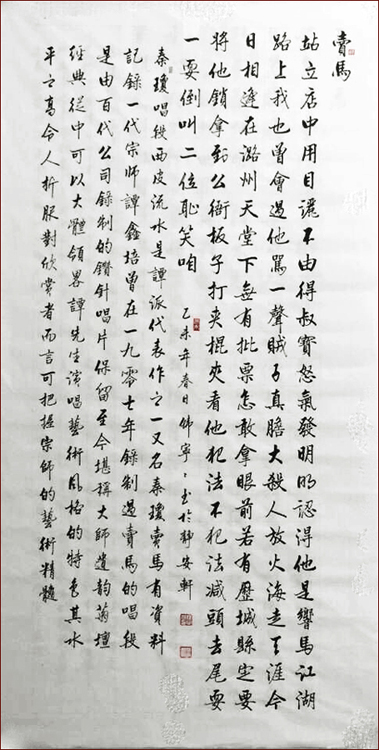 賣馬
站立店中用目灑不由得叔寶怒氣發明明認得他是響馬江湖
路上我也曾會過他罵一聲賊子真膽大殺人放火海走天涯今
日相逢在潞州天堂下無有批票怎敢拿眼前若有歷城縣定要
將他鎖拿到公衙板子打夾棍夾看他犯法不犯法減頭去尾耍
一耍倒叫二位恥笑咱
乙未年春日 書於靜安軒
秦瓊唱段西皮流水是譚派代表作之一又名秦瓊賣馬有資料
記錄一代宗師譚鑫培曾在一九零七年錄制過賣馬的唱段
是由百代公司錄制的鑽針唱片保留至今堪稱大師遺韵菊壇
經典從中可以大體領略譚先生演唱藝術風格的特色其水
平之高令人折服對欣賞者而言可把握宗師的藝術精髓